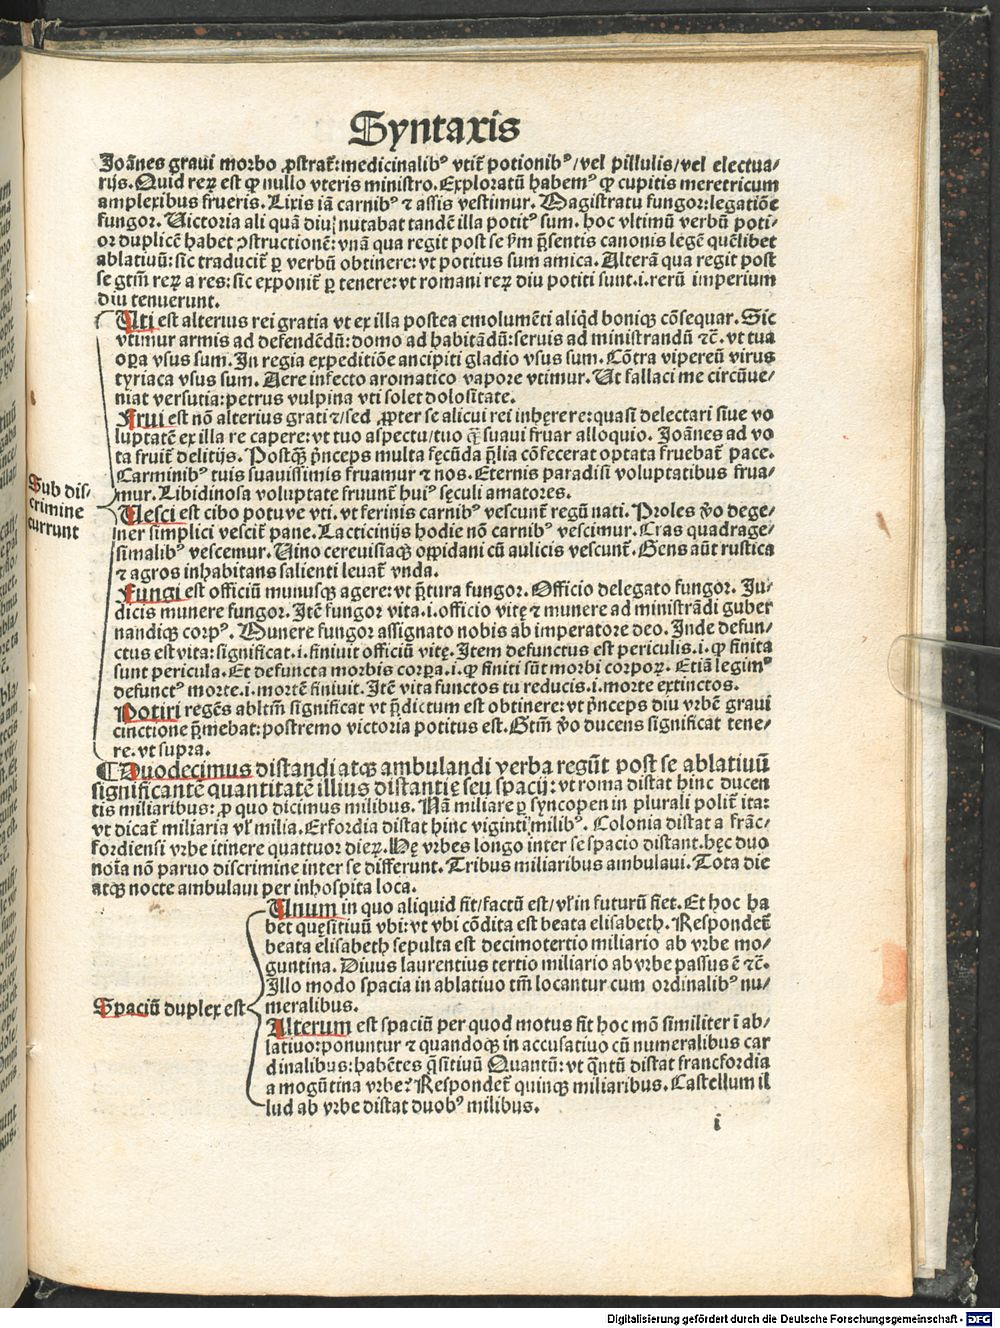 Syntaxis
Joãnes graui morbo ꝓstratꝰ: medicinalibꝰ vtit̃ potionibꝰ/vel pillulis/vel electua⸗
rijs. Quid reꝝ est ꝙ nullo vteris ministro. Exploratũ habemꝰ ꝙ cupitis meretricum
amplexibus frueris. Lixis iã carnibꝰ ⁊ assis vestimur. Magistratu fungor: legatiõe
fungor. Victoria ali quã diu nutabat tandẽ illa potitꝰ sum. hoc vltimũ verbũ poti⸗
or duplicẽ habet ꝯstructionẽ: vnã qua regit post se ẜm p̃sentis canonis legẽ quẽlibet
ablatiuũ: sic traducit̃ ꝑ verbũ obtinere: vt potitus sum amica. Alterã qua regit post
se gtm̃ reꝝ a res: sic exponit̃ ꝑ tenere: vt romani reꝝ diu potiti sunt .i. rerũ imperium
diu tenuerunt.
Uti est alterius rei gratia vt ex illa postea emolumẽti aliq̃d boniqꝫ cõsequar. Sic
vtimur armis ad defendẽdũ: domo ad habitãdũ: seruis ad ministrandũ ⁊c̃. vt tua
oꝑa vsus sum. In regia expeditiõe ancipiti gladio vsus sum. Cõtra vipereũ virus
tyriaca vsus sum. Aere infecto aromatico vapore vtimur. Ut fallaci me circũue⸗
niat versutia: petrus vulpina vti solet dolositate.
Frui est nõ alterius grati ⁊/sed ꝓpter se alicui rei inhęrere: quasi delectari siue vo
luptatẽ ex illa re capere: vt tuo aspectu/tuo q̃ꝫ suaui fruar alloquio. Joãnes ad vo
ta fruit̃ delitijs. Postq̃ꝫ p̃nceps multa fęcũda p̃lia cõfecerat optata fruebat̃ pace.
Carminibꝰ tuis suauissimis fruamur ⁊ nos. Eternis paradisi voluptatibus frua⸗
mur. Libidinosa voluptate fruunt̃ huiꝰ sęculi amatores.
Sub dis⸗
crimine
currunt
Uesci est cibo potuve vti. vt ferinis carnibꝰ vescunt̃ regũ nati. Proles ṽo dege⸗
ner simplici vescit̃ pane. Lacticinijs hodie nõ carnibꝰ vescimur. Cras quadrage⸗
simalibꝰ vescemur. Uino cereuisiaqꝫ oppidani cũ aulicis vescunt̃. Gens aũt rustica
⁊ agros inhabitans salienti leuat̃ vnda.
Fungi est officiũ munusqꝫ agere: vt p̃tura fungor. Officio delegato fungor. Ju⸗
dicis munere fungor. Itẽ fungor vita .i. officio vitę ⁊ munere ad ministrãdi guber
nandiqꝫ corpꝰ. Munere fungor assignato nobis ab imperatore deo. Inde defun⸗
ctus est vita: significat .i. finiuit officiũ vitę. Item defunctus est periculis .i. ꝙ finita
sunt pericula. Et defuncta morbis corꝑa .i. ꝙ finiti sũt morbi corpoꝝ. Etiã legimꝰ
defunctꝰ morte .i. mortẽ finiuit. Itẽ vita functos tu reducis .i. morte extinctos.
Potiri regẽs abltm̃ significat vt p̃dictum est obtinere: vt p̃nceps diu vrbẽ graui
cinctione p̃mebat: postremo victoria potitus est. Gtm̃ ṽo ducens significat tene⸗
re. vt supra.
¶ Duodecimus distandi atqꝫ ambulandi verba regũt post se ablatiuũ
significantẽ quantitatẽ illius distantię seu spacij: vt roma distat hinc ducen
tis miliaribus: ꝓ quo dicimus milibus. Nã miliare ꝑ syncopen in plurali polit̃ ita:
vt dicat̃ miliaria vl̃ milia. Erfordia distat hinc viginti milibꝰ. Colonia distat a frãc⸗
fordiensi vrbe itinere quattuor dieꝝ. Hę vrbes longo inter se spacio distant. hęc duo
noĩa nõ paruo discrimine inter se differunt. Tribus miliaribus ambulaui. Tota die
atqꝫ nocte ambulaui per inhospita loca.
Spaciũ duplex est
Unum in quo aliquid fit/factũ est/vl̃ in futurũ fiet. Et hoc ha
bet quęsitiuũ vbi: vt vbi cõdita est beata elisabeth. Respondet̃
beata elisabeth sepulta est decimotertio miliario ab vrbe mo⸗
guntina. Diuus laurentius tertio miliario ab vrbe passus ẽ ⁊c̃.
Illo modo spacia in ablatiuo tm̃ locantur cum ordinalibꝰ nu⸗
meralibus.
Alterum est spaciũ per quod motus fit hoc mõ similiter ĩ ab⸗
latiuo: ponuntur ⁊ quandoqꝫ in accusatiuo cũ numeralibus car
dinalibus: habẽtes q̃sitiuũ Quantũ: vt q̃ntũ distat francfordia
a mogũtina vrbe? Respondet̃ quinqꝫ miliaribus. Castellum il
lud ab vrbe distat duobꝰ milibus.
i
Digitalisierung gefördert durch die Deutsche Forschungsgemeinschaft - DFG